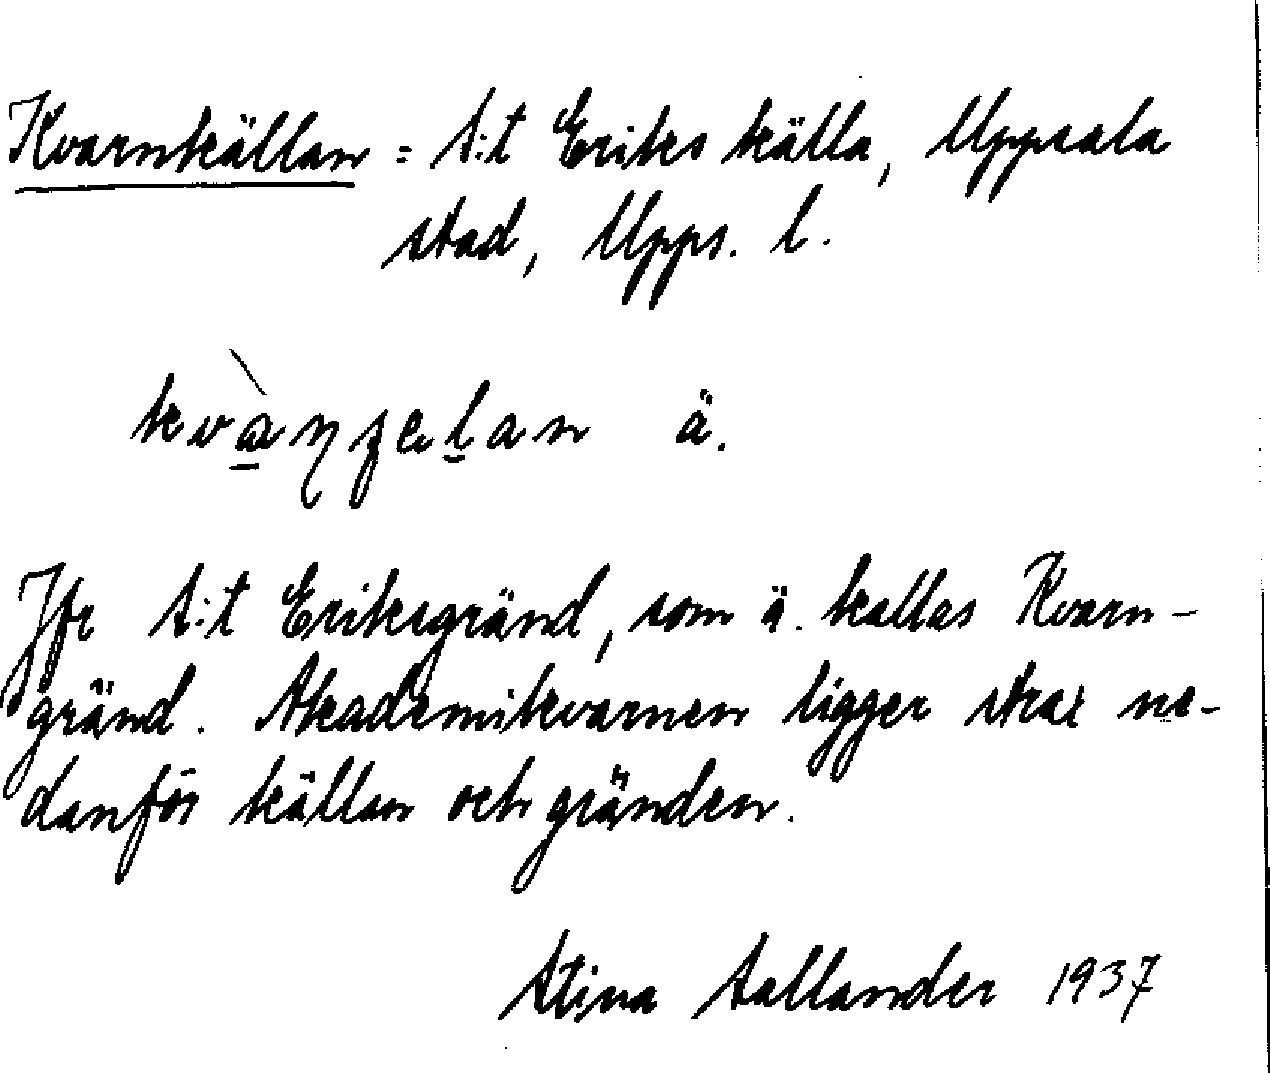 Kvarnkällan = S:t Eriks källa, Uppsala
stad, Upps. l.
ä.
Jfr S:t Eriksgränd, som ä. kallas Kvarn-
gränd. Akademikvarnen ligger strax ne-
danför källan och gränden.
Stina Sallander 1937